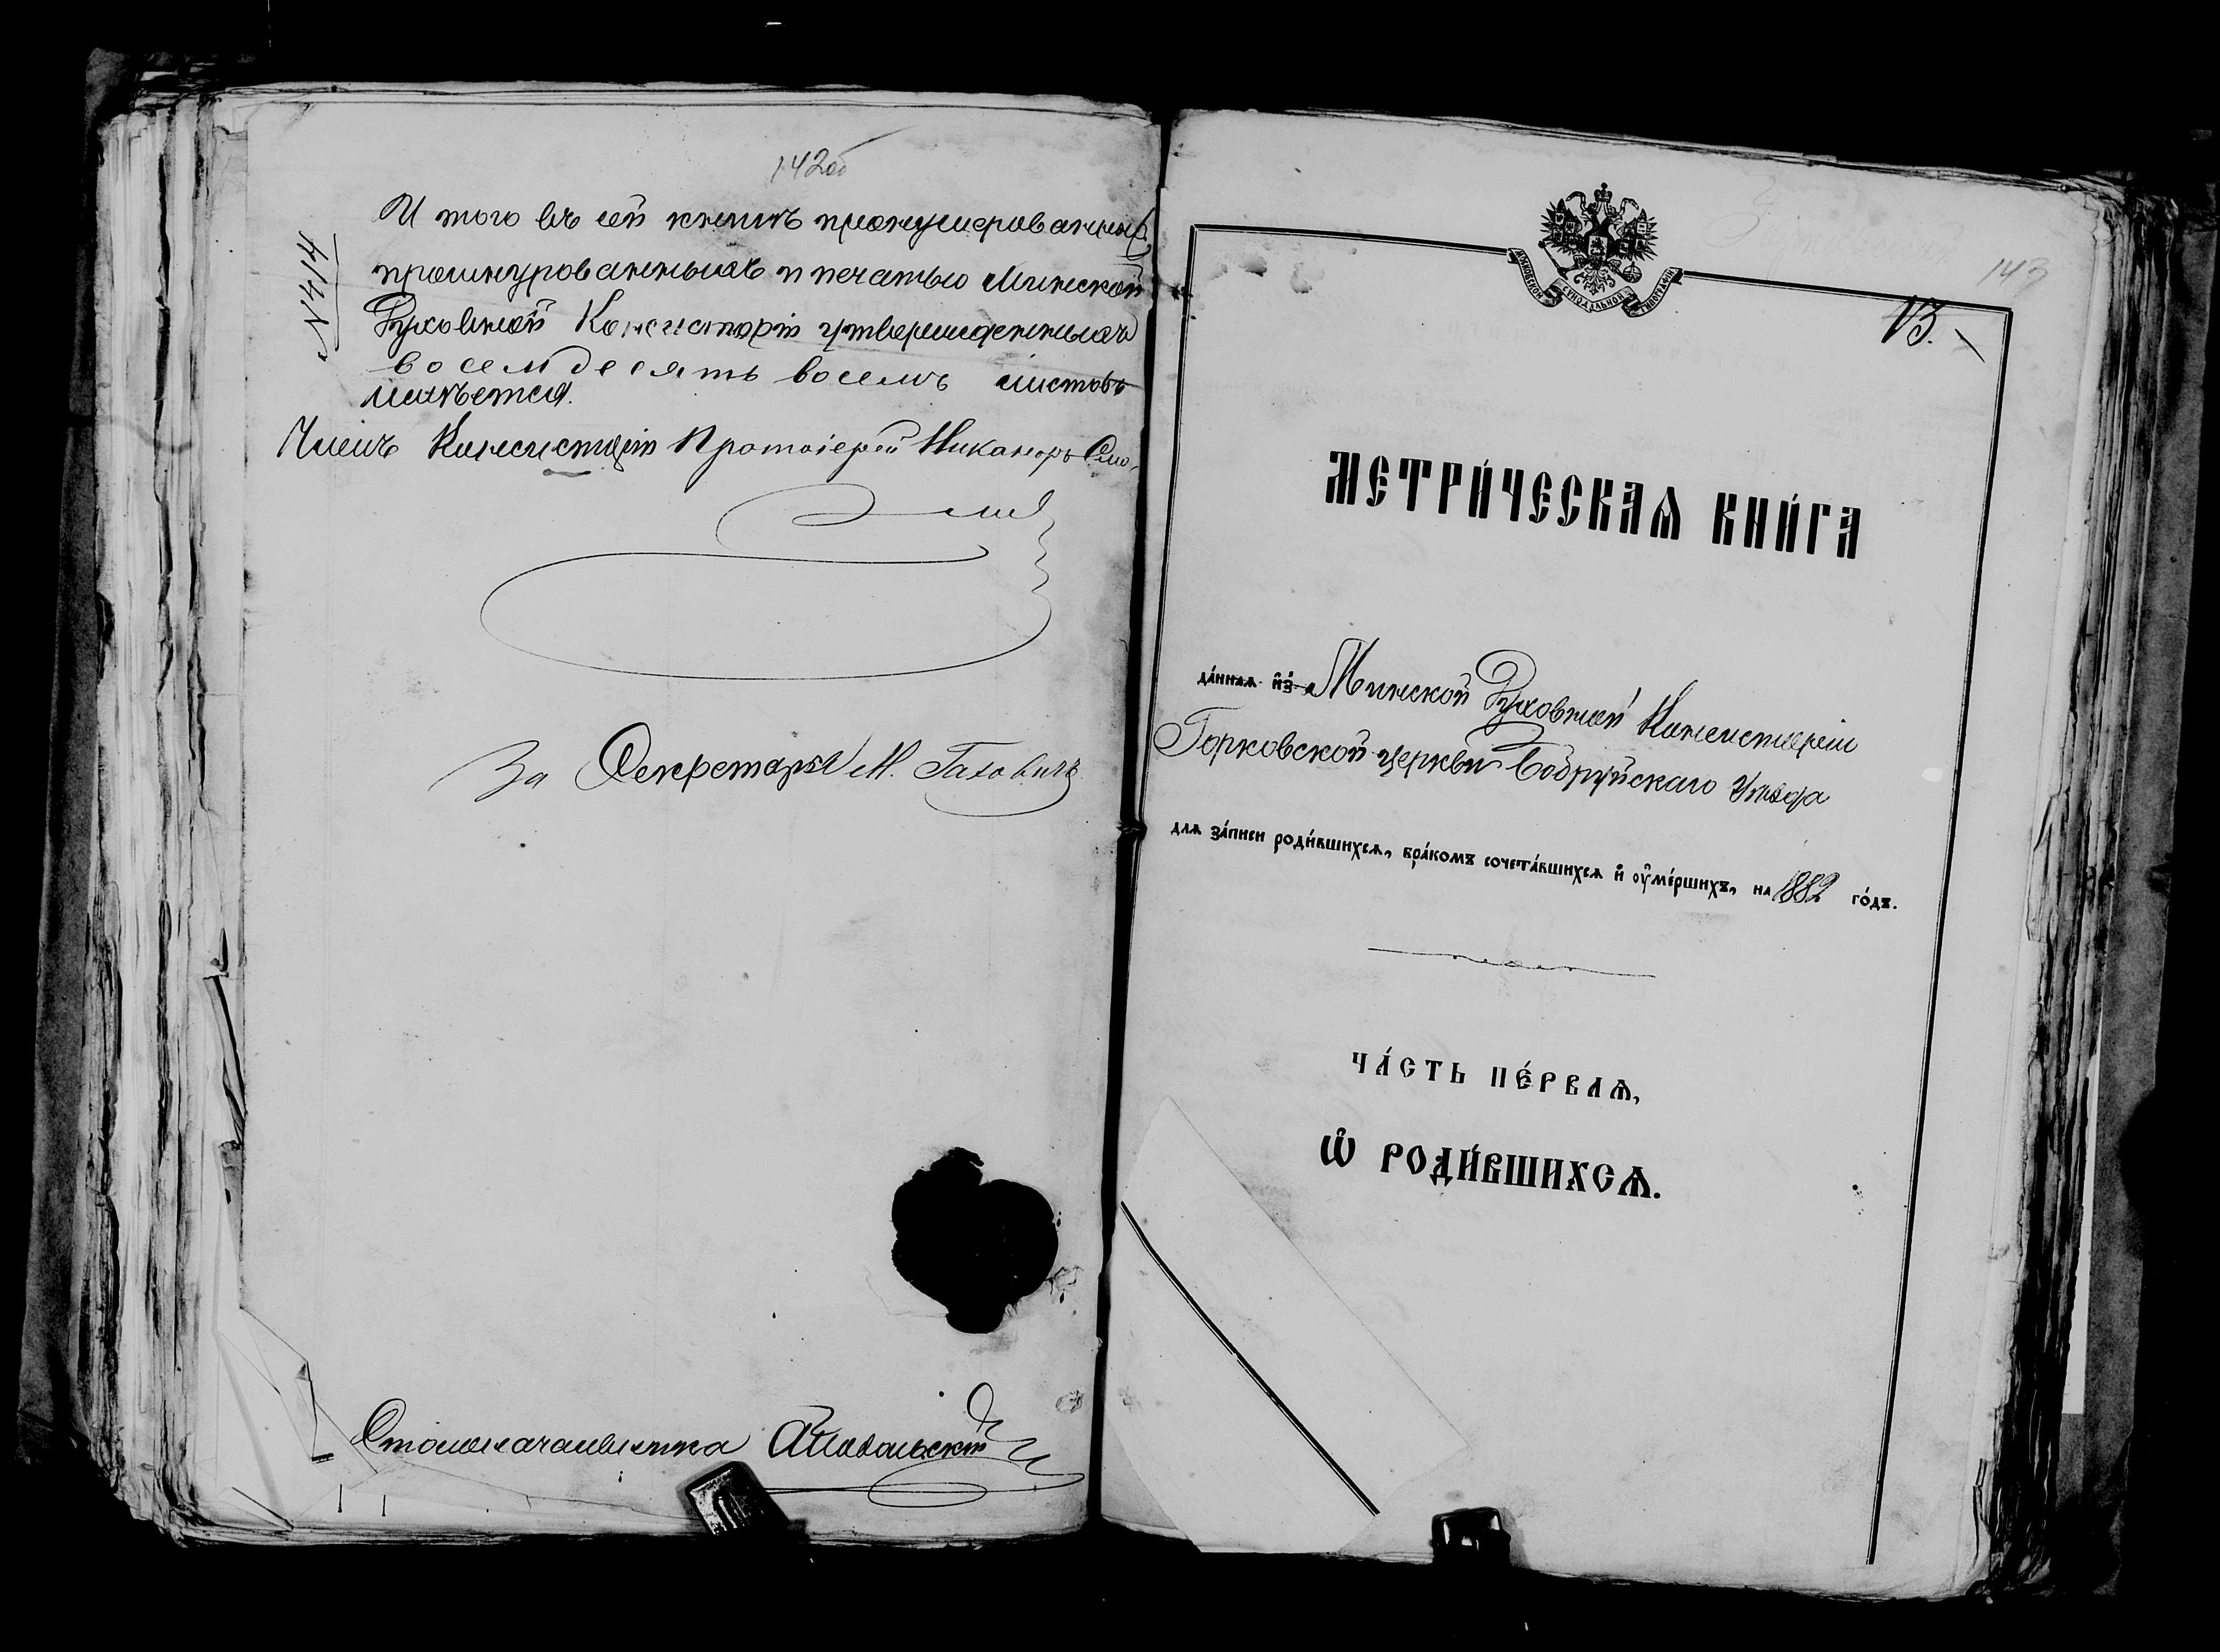 142об
№ 414
И того въ сей книгѣ пронумерованныхъ
прошнурованныхъ и печатью Минской
Духовной Консисторіи утвержденныхъ
восемдесять восемъ листовъ
имѣется.
Членъ Консисторіи Протоіерей Никаноръ Смо-
личъ
За Секретаря М.
Столоначальника
143
13.
МОСКОВСКОЙ СѴНОДАЛЬНОЙ ТИПОГРАФІИ
МЕТРИ́ЧЕСКАѦ КНИ́ГА
да́ннаѧ и҆з̾ Минской Духовной Консисторіи
Горковской церкви Бобруйскаго Уѣзда
длѧ за́писи роди́вшихсѧ, бра́комъ сочета́вшихсѧ и҆ ᲂу҆ме́ршихъ, на 1882 го́дъ.
ЧА́СТЬ ПЕ́РВАѦ,
Ѡ҆ РОДИ́ВШИХСѦ.